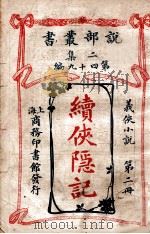 說部叢書
二集
第四十九編
義俠小說　第二冊
續俠隱記
上海商務印書館發行